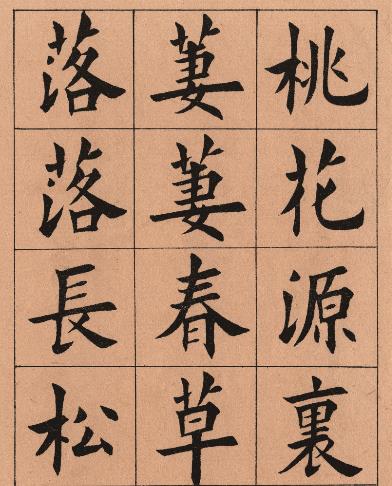 桃花源裏
萋萋春草
落落長松